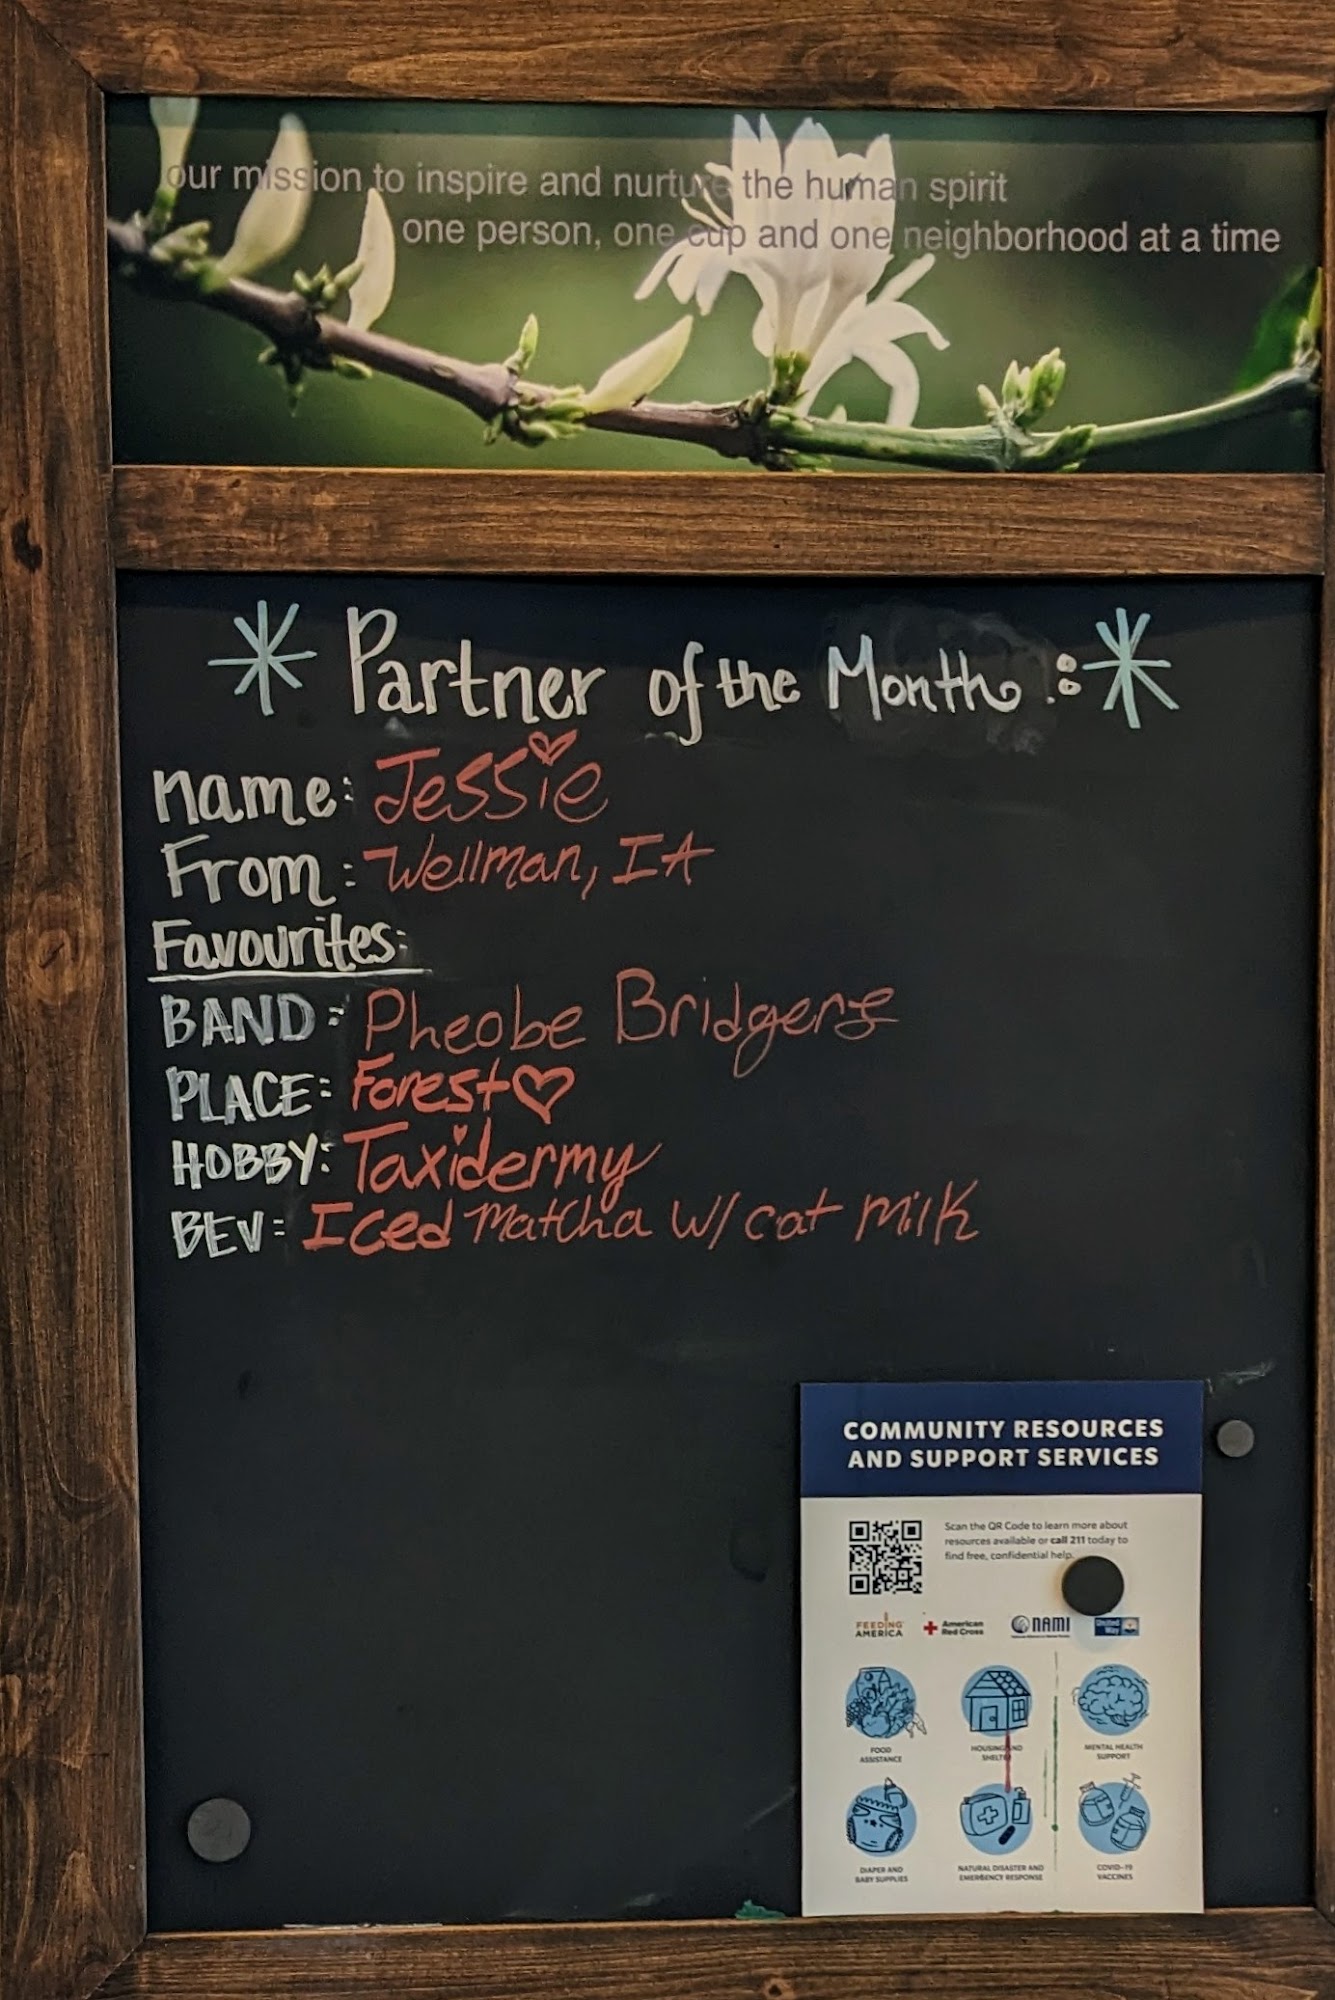 our mission to inspire and nurture the human spirit
one person, one cup and one neighborhood at a time
Partner of the Month :
name: Jessie
From: Wellman, IA
Favourites:
BAND: Pheobe Bridgers
PLACE: Forest
HOBBY: Taxidermy
BEV: Iced Matcha w/ cat milk
COMMUNITY RESOURCES
AND SUPPORT SERVICES
Scan the QR Code to learn more about
resources available or call 211 today to
find free, confidential help.
FEEDING
AMERICA
American
Red Cross
NAMI
United
Way
FOOD
ASSISTANCE
HOUSING AND
SHELTER
MENTAL HEALTH
SUPPORT
DIAPER AND
BABY SUPPLIES
NATURAL DISASTER AND
EMERGENCY RESPONSE
COVID-19
VACCINES